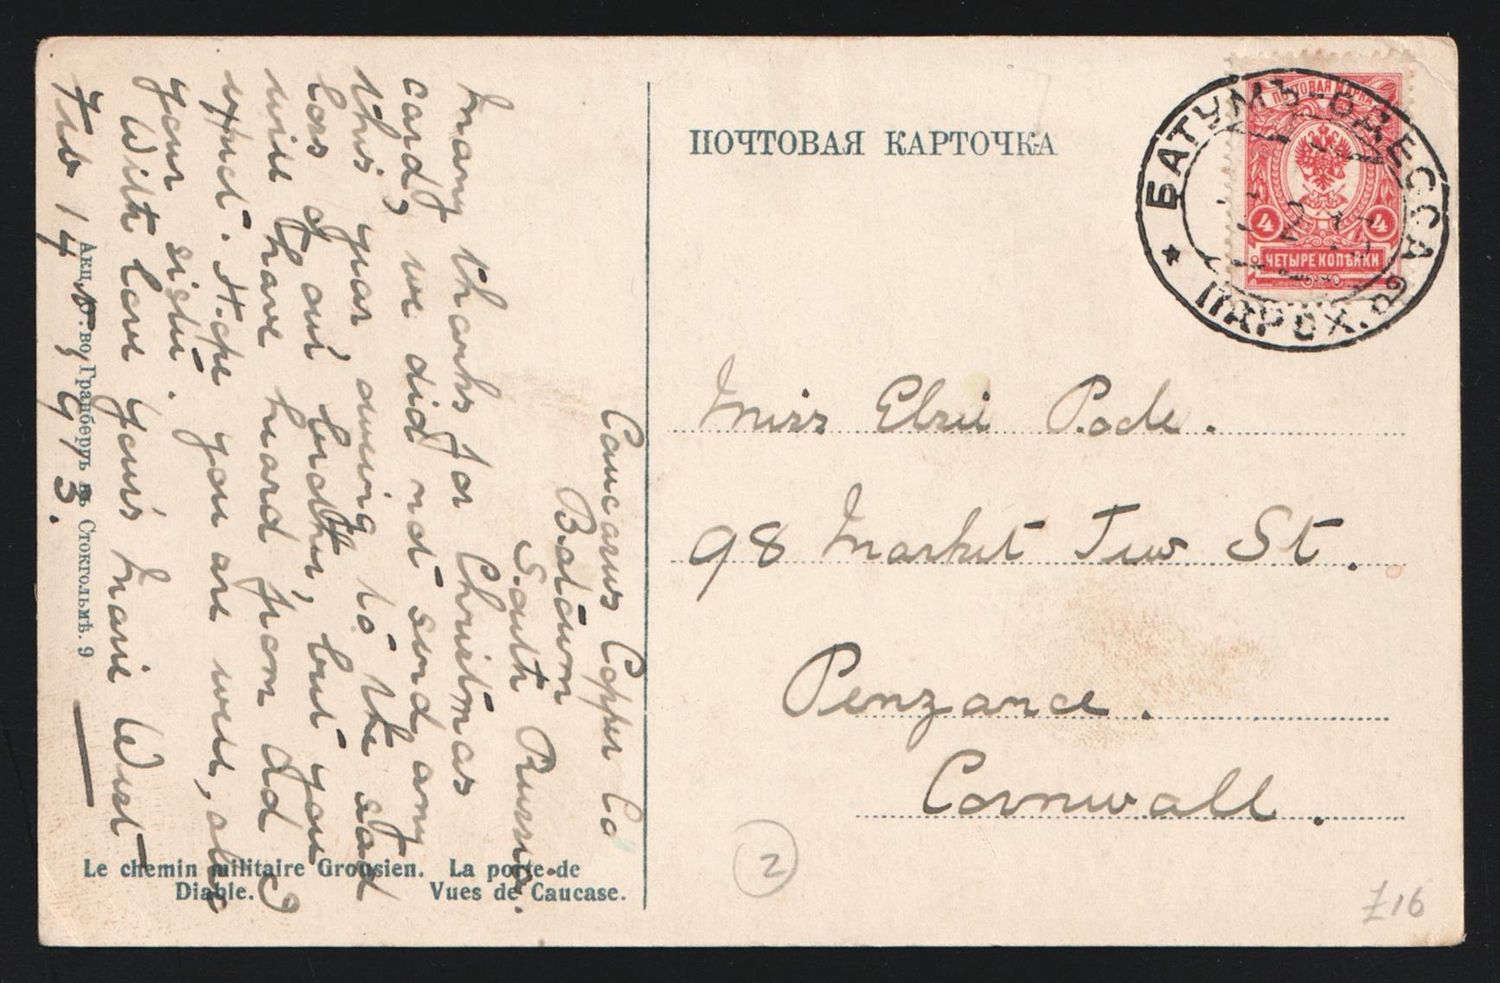 ПОЧТОВАЯ КАРТОЧКА
ПОЧТОВАЯ МАРКА
4 4
ЧЕТЫРЕ КОПѢЙКИ
БАТУМЪ-ОДЕССА
ПАРОХ.
Miss Elsie Pode.
98 Market Jew St.
Penzance.
Cornwall.
Caucasus Copper Co
Batoum
South Russia.
Many thanks for Christmas
card, we did not send any
this year owing to the sad
loss of our brother, but you
will have heard from dd I
expect. Hope you are well, also
your sister.
With love yours Marie West
Feb 14 1913.
Акц. О-во Гранбергъ въ Стокгольмѣ. 9
Le chemin militaire Grousien. La porte de
Diable. Vues de Caucase.
2
£16